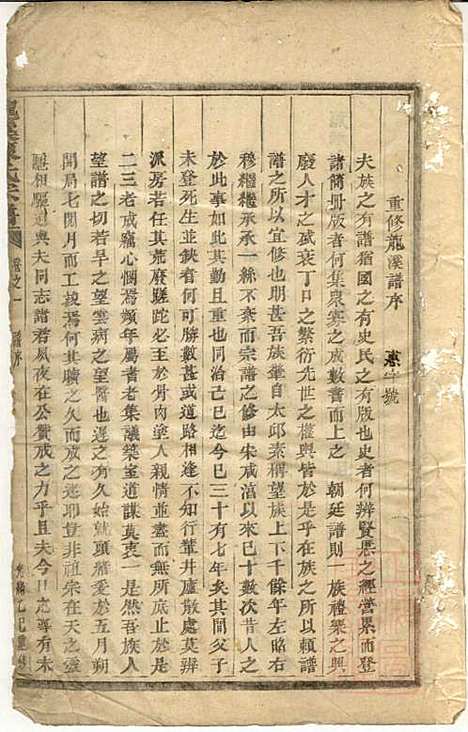 重修龍溪譜序
夫族之有譜猶國之有史氏之有版也史者何辨賢愚之經營累而登
諸簡册版者何集衆寡之成數書而上之　朝廷譜則一族禮樂之興
廢人才之盛衰丁口之繁衍先世之權輿皆於是乎在族之所以賴譜
譜之所以宜修也明甚吾族肇自太邱素稱望族上下千餘年左昭右
穆繼繼承承一絲不紊而宗譜之修由宋咸淳以來已十數次昔人之
於此事如此其勤且重也同治己巳迄今已三十有七年矣其間父子
未登死生並缺者何可勝數甚或道路相逢不知行輩井廬散處莫辨
派房若任其荒廢蹉跎必至於骨肉塗人親情並盡而無所於是
二三老成竊心憫焉頻年屬耆老集議築室道謀莫衷一是然吾族人
望譜之切若旱之望雲病之望醫也遲之有久始就頭緒爰於五月朔
開局七閱月而工竣焉何其曠之久而成之速耶豈非祖宗在天之靈
默相驅迫與夫同志諸君夙夜在公贊成之力乎且夫今日之尊有未
卷之一　譜序
光緒乙巳重修